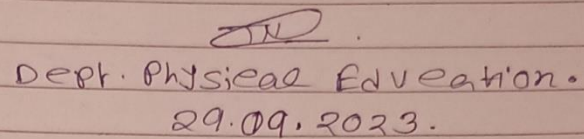 Dept. Physical Education.
29.09.2023.